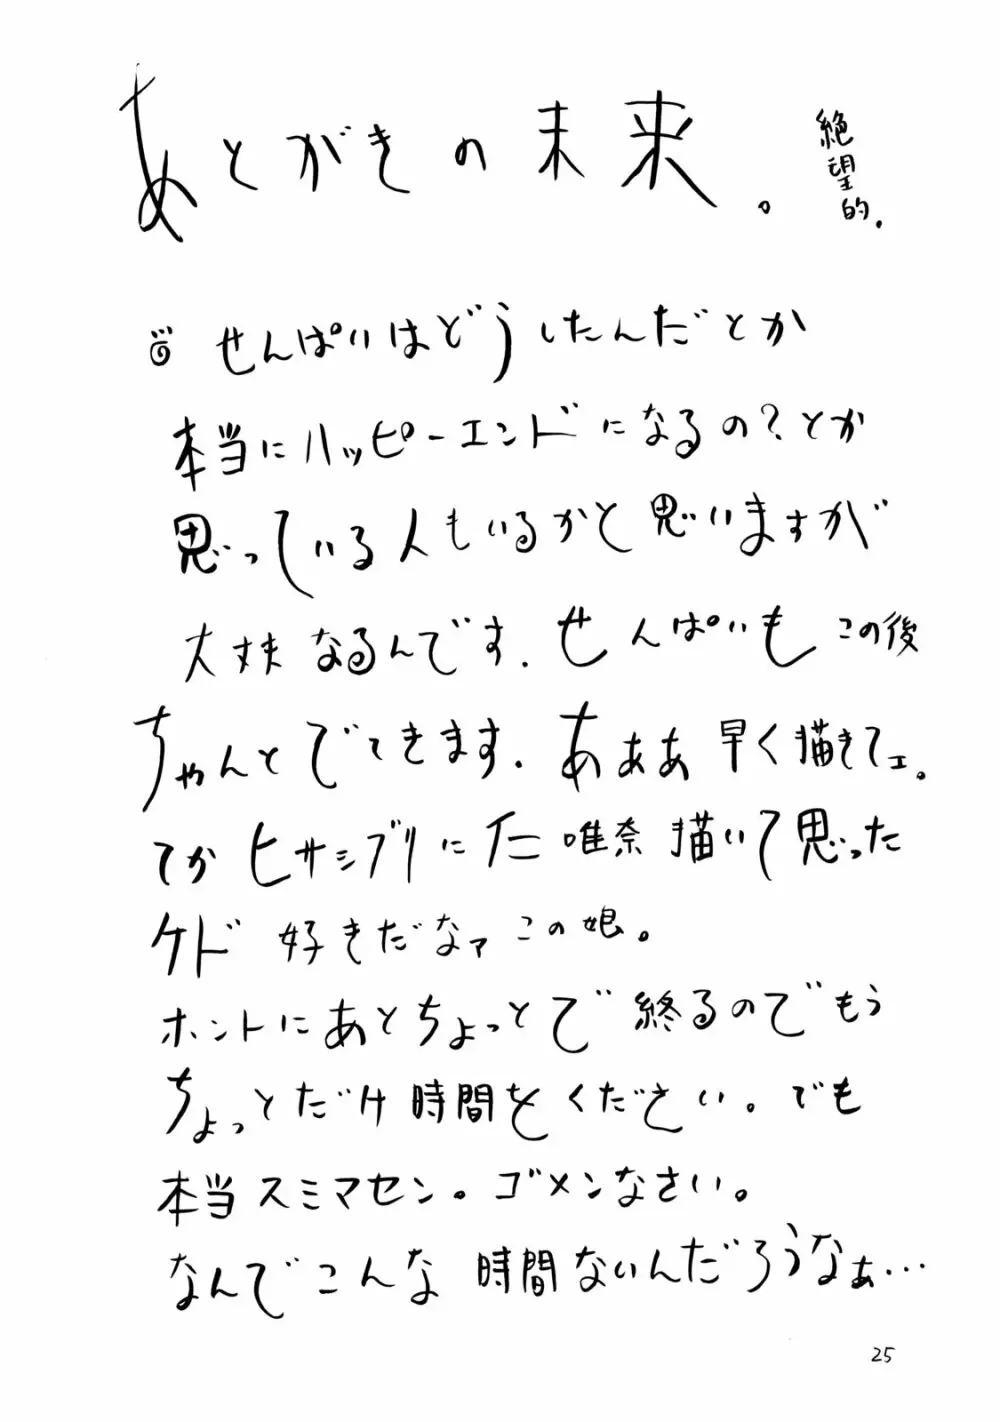 あとがきの未来。
絶望的.
せんぱいはどうしたんだとか
本当にハッピーエンドになるの?とか
思っている人もいるかと思いますが
大丈夫なるんです.せんぱいもこの後
ちゃんとでてきます.あぁぁ早く描きてェ。
てかヒサシブリに仁唯奈描いて思った
ケド好きだなァこの娘。
ホントにあとちょっとで終るのでもう
ちょっとだけ時間をください。でも
本当スミマセン。ゴメンなさい。
なんでこんな時間ないんだろうなぁ…
25